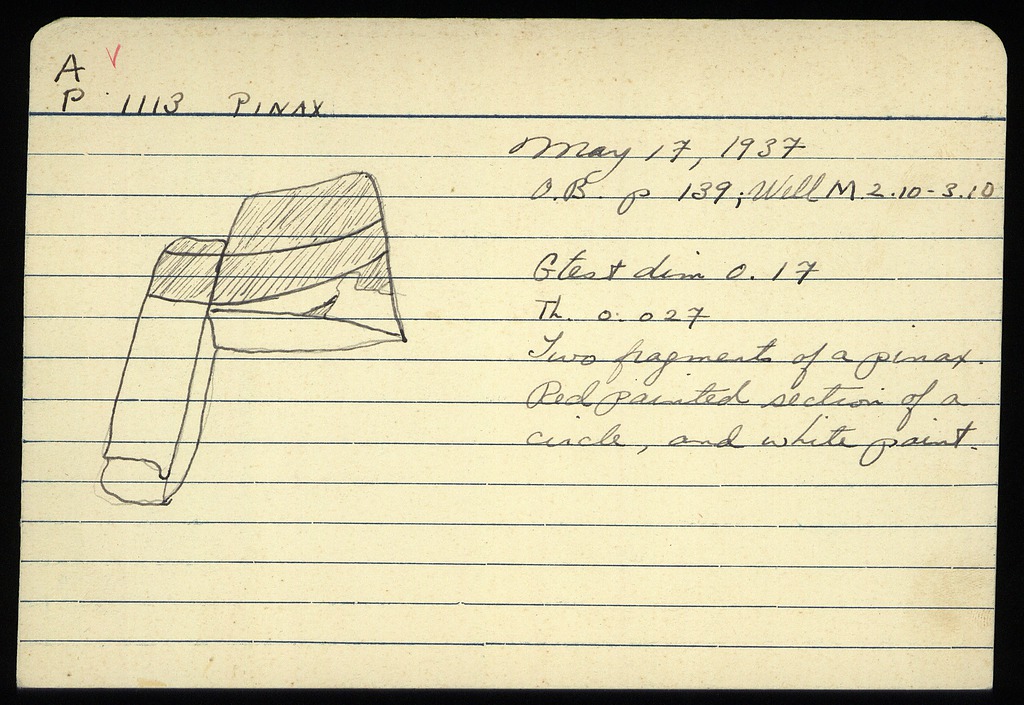 A
P 1113 PINAX
May 17, 1937
O.B. p 139; Well M 2.10-3.10
Gtest dim 0.17
Th. 0.027
Two fragments of a pinax.
Red painted section of a
circle, and white paint.